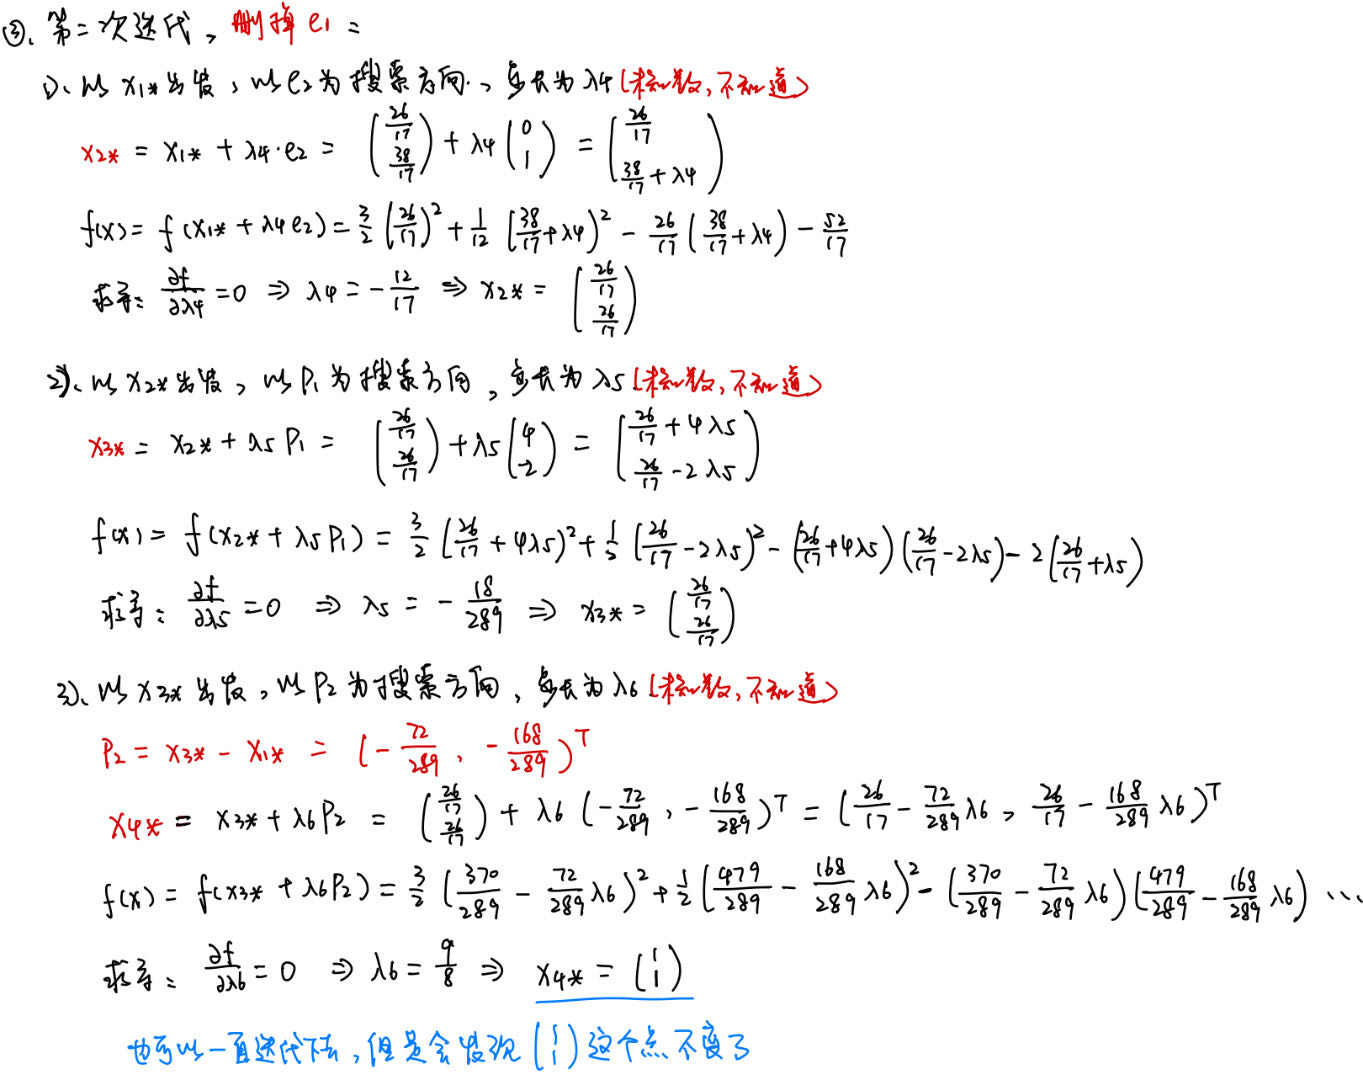 ③、第二次迭代，删掉e₁：
1)、以 x₁* 出发，以 e₂ 为搜索方向，步长为 λ4 (未知数，不知道)
x₂* = x₁* + λ4·e₂ = (26/17, 38/17) + λ4 (0, 1) = (26/17, 38/17 + λ4)
f(x) = f(x₁* + λ4 e₂) = 3/2 (26/17)² + 1/12 (38/17 + λ4)² - 26/17 (38/17 + λ4) - 52/17
求导： ∂f/∂λ4 = 0 ⇒ λ4 = -12/17 ⇒ x₂* = (26/17, 26/17)
2)、以 x₂* 出发，以 P₁ 为搜索方向，步长为 λ5 (未知数，不知道)
x₃* = x₂* + λ5 P₁ = (26/17, 26/17) + λ5 (4, -2) = (26/17 + 4λ5, 26/17 - 2λ5)
f(x) = f(x₂* + λ5 P₁) = 3/2 (26/17 + 4λ5)² + 1/2 (26/17 - 2λ5)² - (26/17 + 4λ5)(26/17 - 2λ5) - 2(26/17 + λ5)
求导： ∂f/∂λ5 = 0 ⇒ λ5 = -18/289 ⇒ x₃* = (26/17, 26/17)
3)、以 x₃* 出发，以 P₂ 为搜索方向，步长为 λ6 (未知数，不知道)
P₂ = x₃* - x₁* = (-72/289, -168/289)ᵀ
x₄* = x₃* + λ6 P₂ = (26/17, 26/17) + λ6 (-72/289, -168/289)ᵀ = (26/17 - 72/289 λ6, 26/17 - 168/289 λ6)ᵀ
f(x) = f(x₃* + λ6 P₂) = 3/2 (370/289 - 72/289 λ6)² + 1/2 (479/289 - 168/289 λ6)² - (370/289 - 72/289 λ6)(479/289 - 168/289 λ6) ...
求导： ∂f/∂λ6 = 0 ⇒ λ6 = 9/8 ⇒ x₄* = (1, 1)
也可以一直迭代下去，但是会发现 (1, 1) 这个点不变了